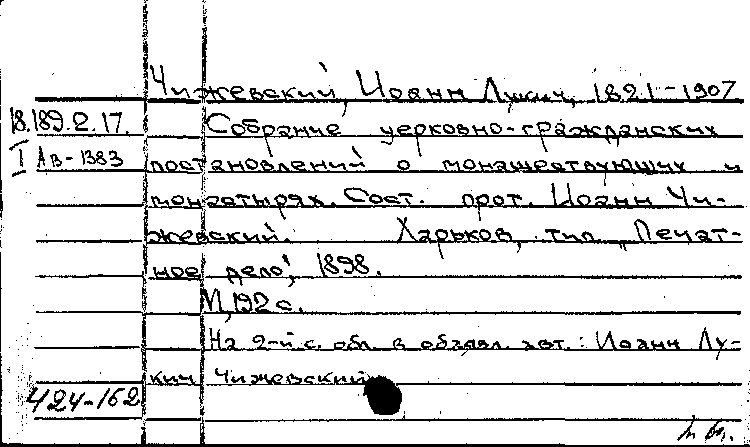 Чижевский, Иоанн Лукич, 1821-1907
18.189.2.17.
Собрание церковно-гражданских
I Ав-1383
постановлений о монашествующих и
монастырях. Сост. прот. Иоанн Чи-
жевский. Харьков, тип. „Печат-
ное дело", 1898.
VI, 192 с.
На 2-й с. обл. в объявл. авт.: Иоанн Лу-
кич Чижевский
424-162